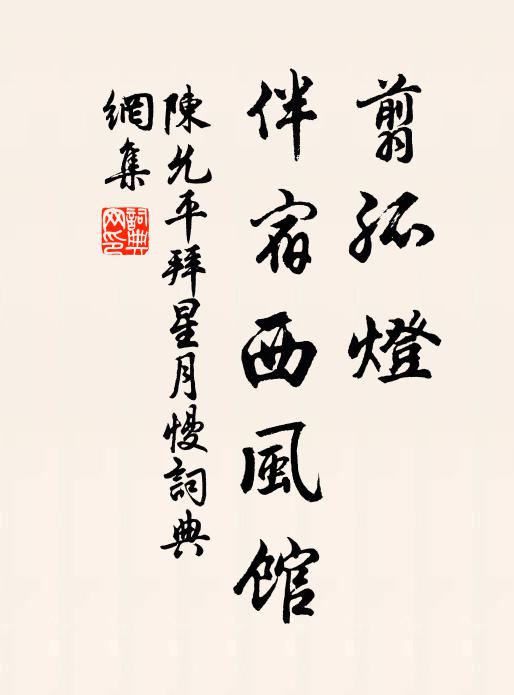 翦孤燈
伴宿西風館
陳允平拜星月慢詞典
網集
詞典
網印